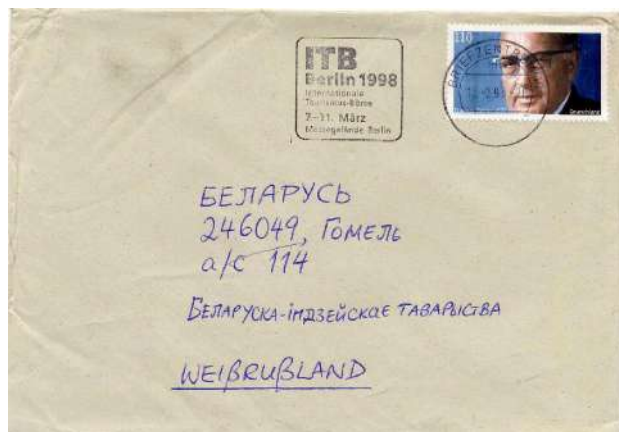 ITB
Berlin 1998
Internationale
Tourismus-Börse
7-11. März
Messegelände Berlin
110
BRIEFZENTR
Deutschland
БЕЛАРУСЬ
246049, ГОМЕЛЬ
а/с 114
БЕЛАРУСКА-ІНДЗЕЙСКАЕ ТАВАРЫСТВА
WEIßRUßLAND